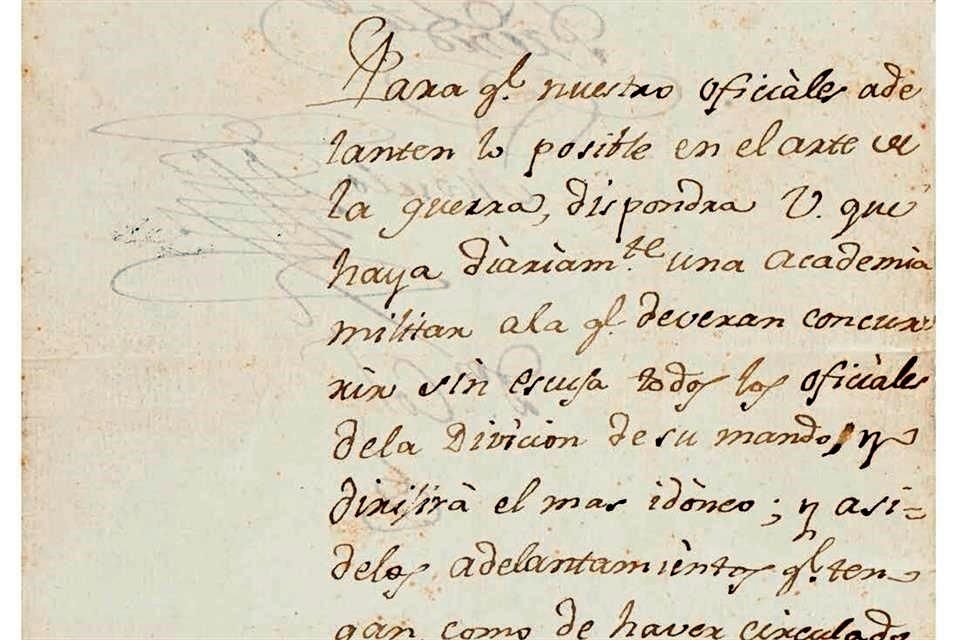 Para ql nuestro oficiàles ade
lanten lo posible en el arte de
la guerra, dispondra V. que
haya diàriamte una academia
militar ala ql deveran concur
rir sin escusa todos los oficiàles
dela Division de su mando, y
dirijirà el mas idòneo; y asi=
delos adelantamièntos ql ten
gan como de haver circulado